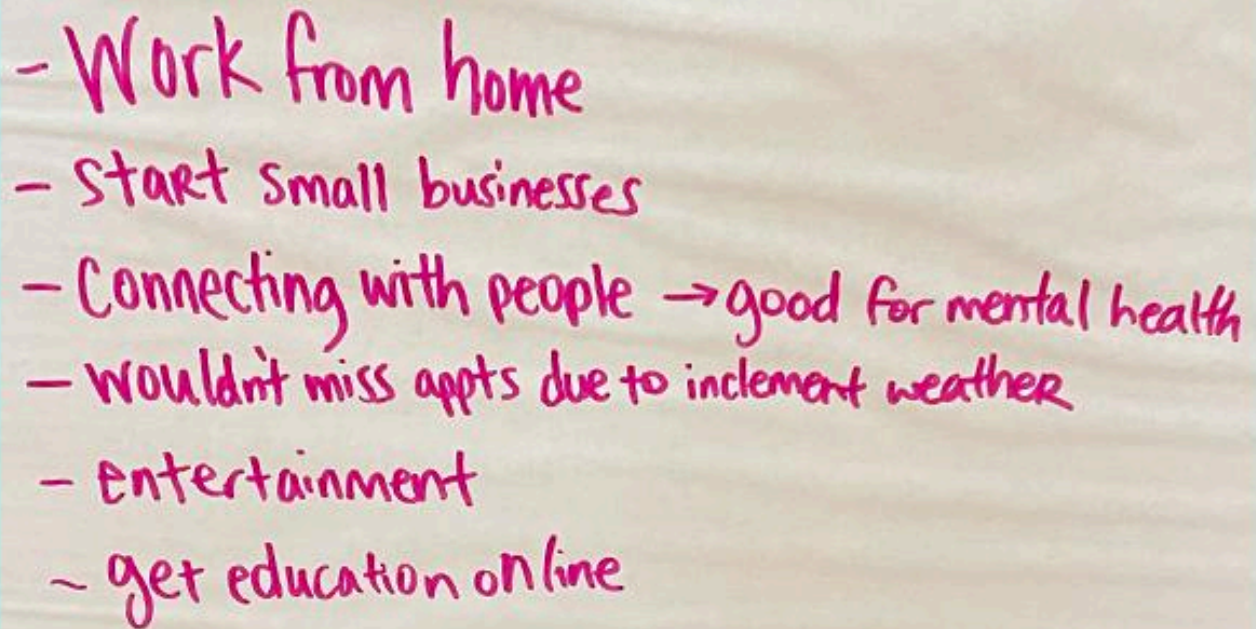 - Work from home
- Start small businesses
- Connecting with people → good for mental health
- wouldn't miss appts due to inclement weather
- entertainment
~ get education online